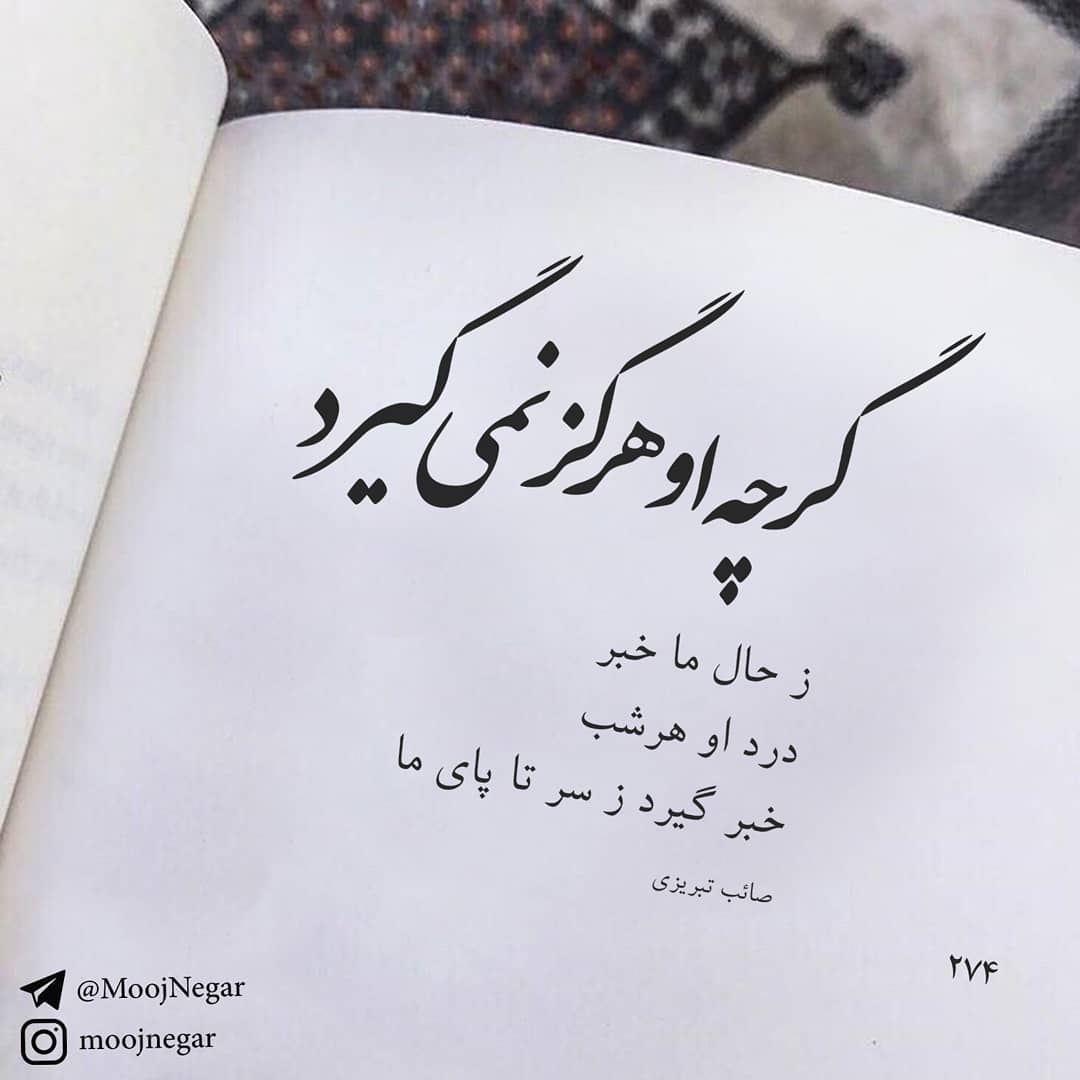 گرچه او هرگز نمی گیرد
ز حال ما خبر
درد او هرشب
خبر گیرد ز سر تا پای ما
صائب تبریزی
۲۷۴
@MoojNegar
moojnegar